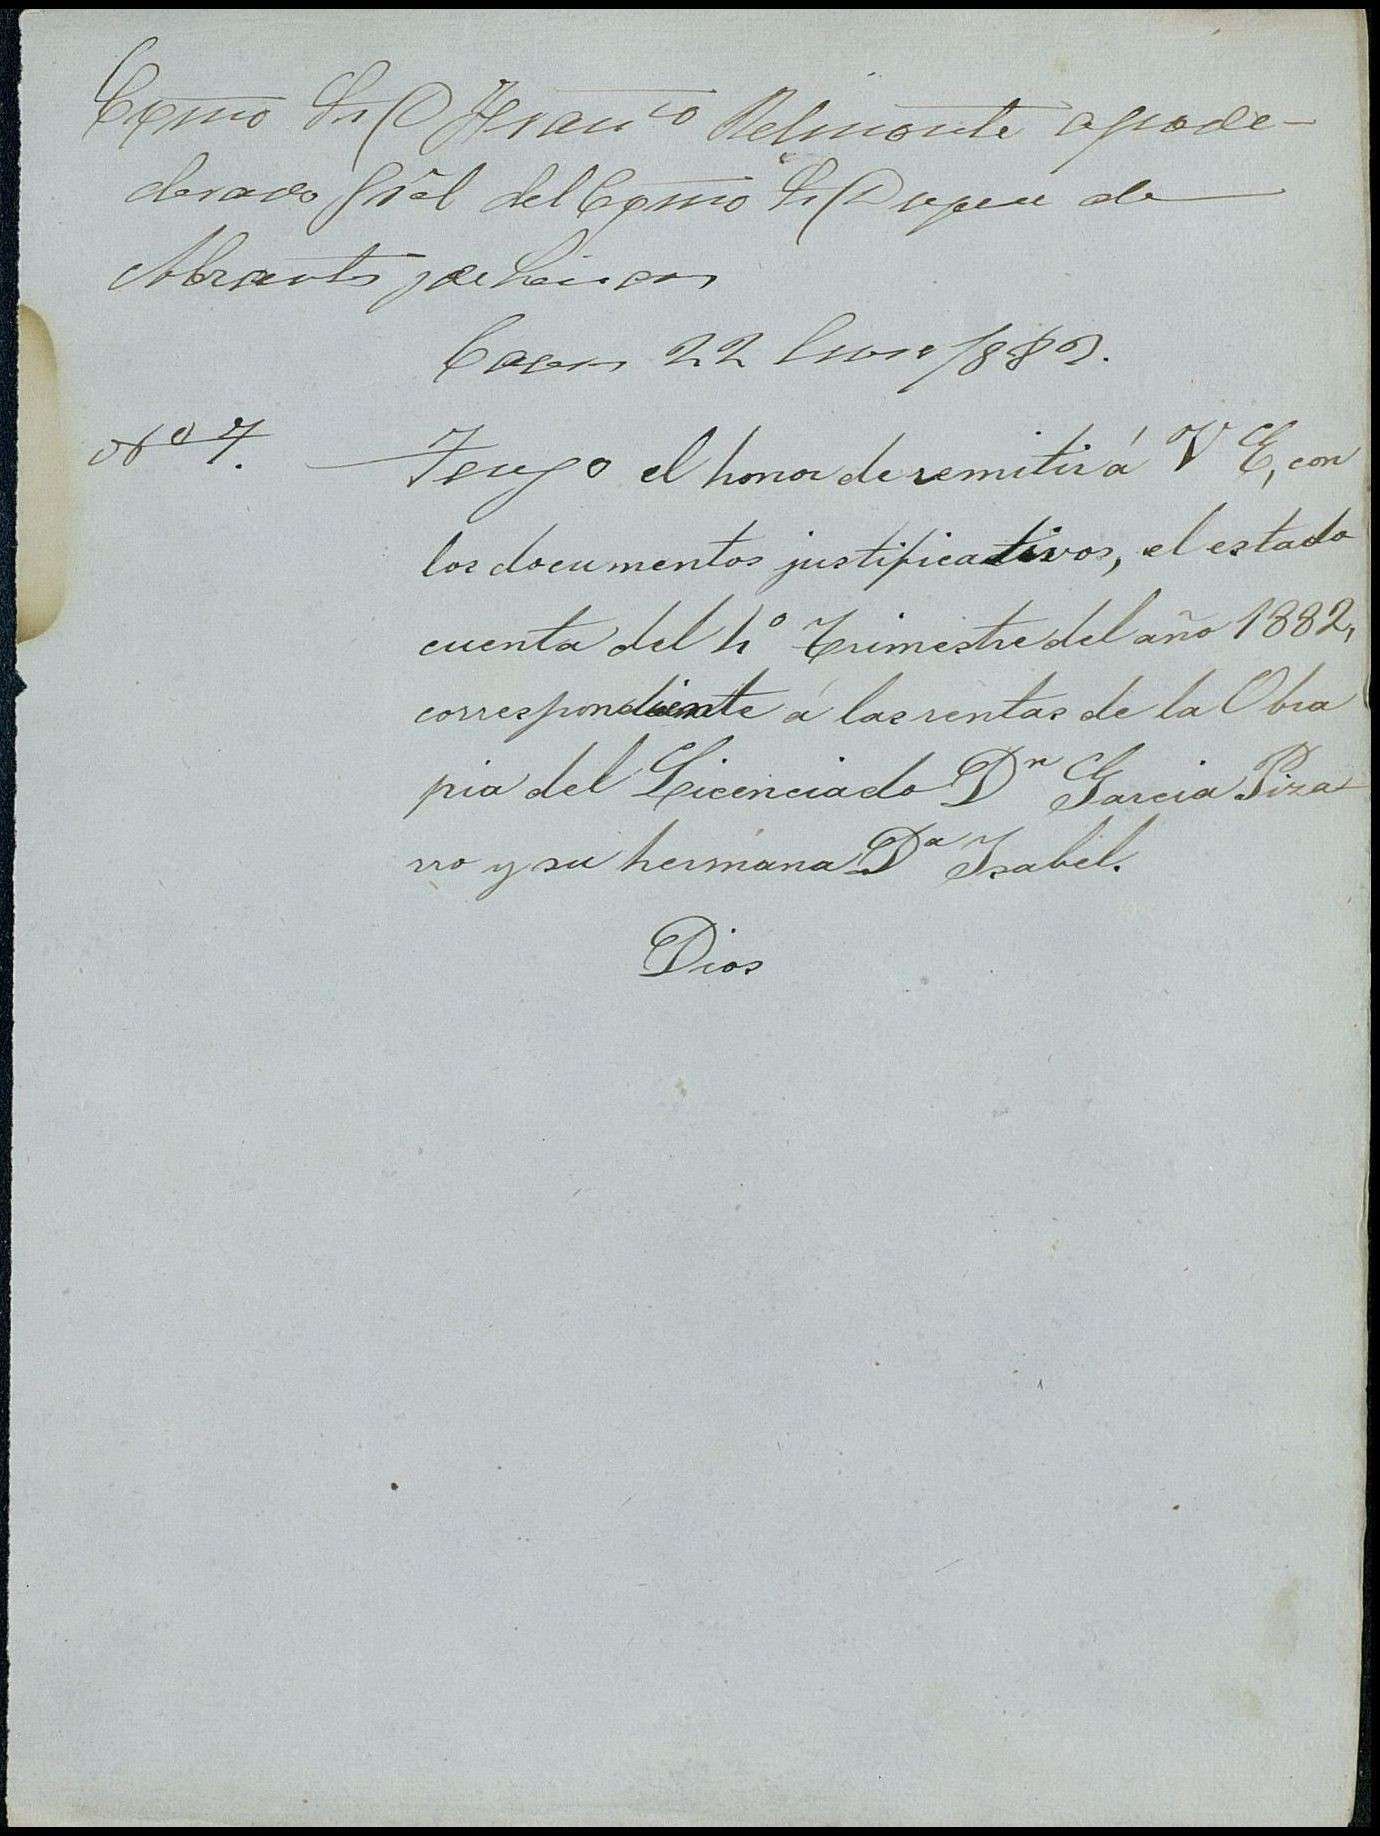 Excmo Sr D Franco Belmonte apode-
derado Gral del Excmo Sr Duque de
Abrantes y de Linares
22 Enero 1883.
No 7. Tengo el honor de remitir á V E, con
los documentos justificativos, el estado
cuenta del 4o Trimestre del año 1882,
correspondiente á las rentas de la Obra
pia del Licenciado Dn Garcia Piza-
rro y su hermana Da Isabel.
Dios